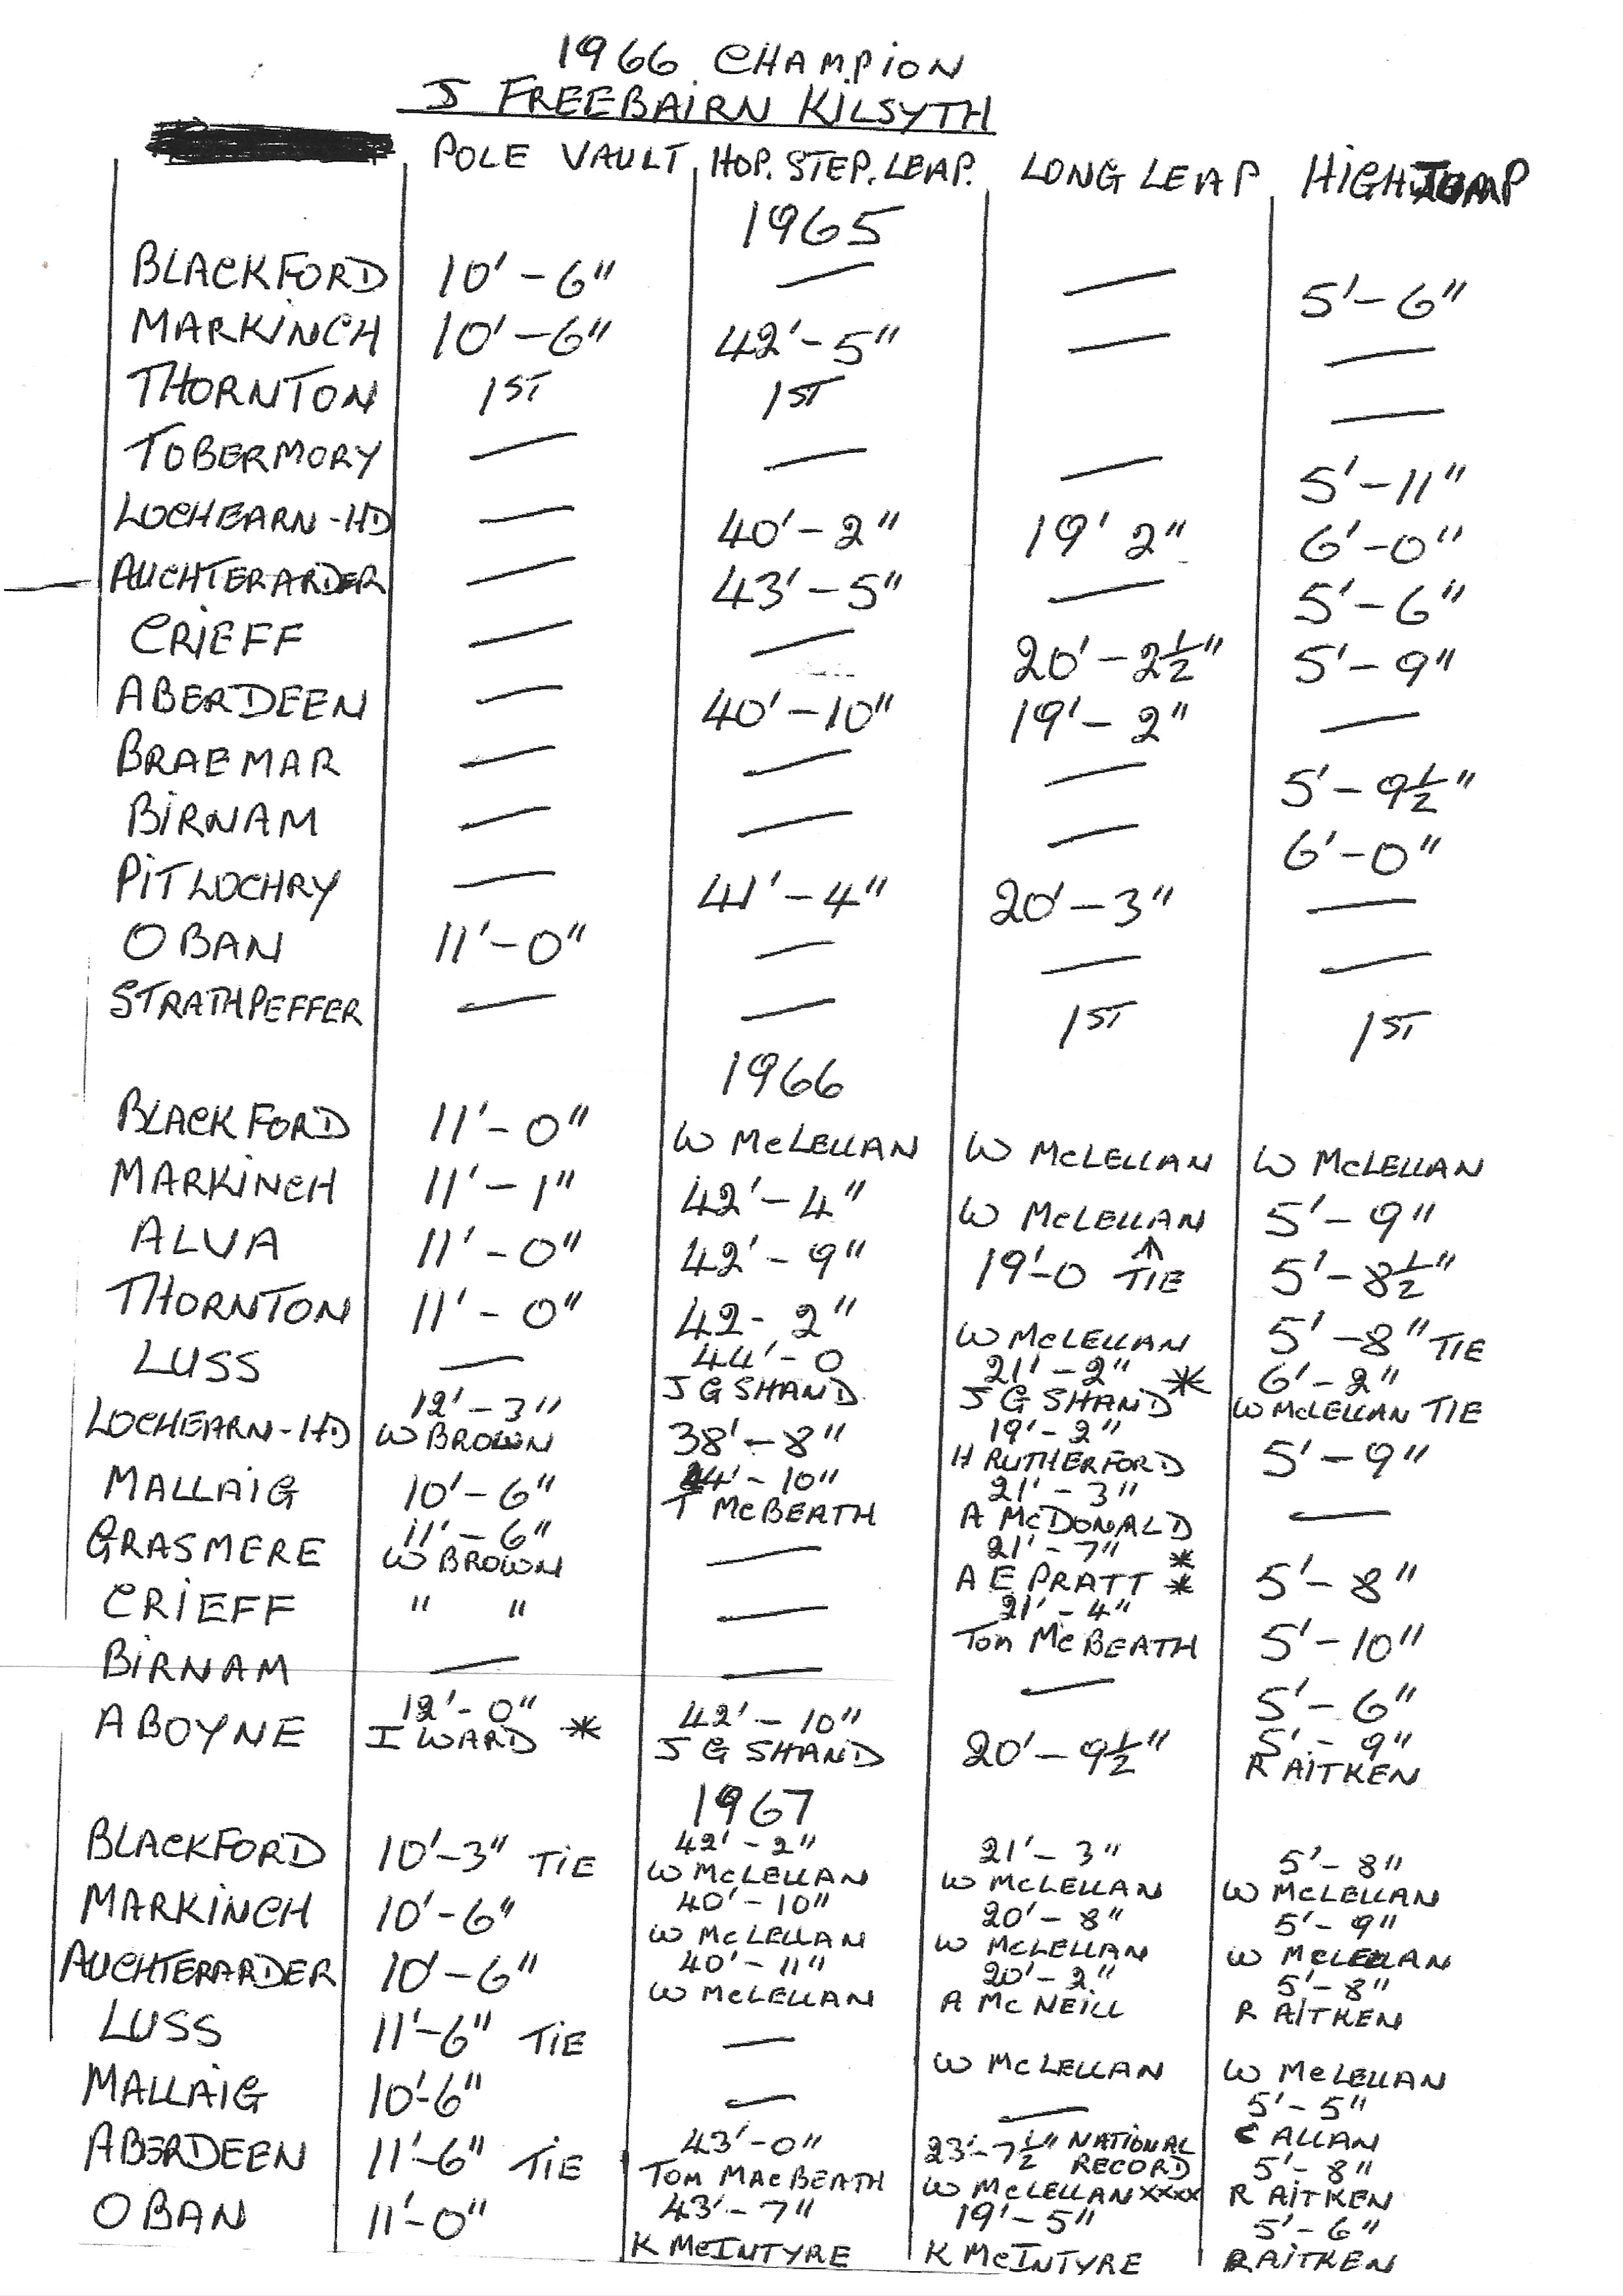 1966 CHAMPION
J FREEBAIRN KILSYTH
POLE VAULT HOP. STEP. LEAP. LONG LEAP HIGH JUMP
1965
BLACKFORD 10'-6" — — 5'-6"
MARKINCH 10'-6" 42'-5" — —
THORNTON 1ST 1ST —
TOBERMORY — — — 5'-11"
LOCHEARN-HD — 40'-2" 19' 2" 6'-0"
AUCHTERARDER — 43'-5" — 5'-6"
CRIEFF — — 20'-2½" 5'-9"
ABERDEEN — 40'-10" 19'-2" —
BRAEMAR — — — 5'-9½"
BIRNAM — — — 6'-0"
PITLOCHRY — 41'-4" 20'-3" —
OBAN 11'-0" — — —
STRATHPEFFER — — 1ST 1ST
1966
BLACKFORD 11'-0" W McLELLAN W McLELLAN W McLELLAN
MARKINCH 11'-1" 42'-4" W McLELLAN 5'-9"
ALVA 11'-0" 42'-9" 19'-0 TIE 5'-8½"
THORNTON 11'-0" 42-2" W McLELLAN 5'-8" TIE
LUSS — 44'-0 21'-2" * 6'-2"
J G SHAND J G SHAND W McLELLAN TIE
12'-3" 19'-2"
LOCHEARN-HD W BROWN 38'-8" H RUTHERFORD 5'-9"
MALLAIG 10'-6" 44'-10" 21'-3" —
T McBEATH A McDONALD
11'-6" 21'-7" *
GRASMERE W BROWN — A E PRATT * 5'-8"
CRIEFF " " — 21'-4" 5'-10"
Tom McBEATH
BIRNAM — — — 5'-6"
12'-0" 42'-10" 5'-9"
ABOYNE I WARD * J G SHAND 20'-9½" R AITKEN
1967
42'-2" 21'-3" 5'-8"
BLACKFORD 10'-3" TIE W McLELLAN W McLELLAN W McLELLAN
40'-10" 20'-8" 5'-9"
MARKINCH 10'-6" W McLELLAN W McLELLAN W McLELLAN
40'-11" 20'-2" 5'-8"
AUCHTERARDER 10'-6" W McLELLAN A McNEILL R AITKEN
LUSS 11'-6" TIE — W McLELLAN W McLELLAN
MALLAIG 10'-6" — — 5'-5"
C ALLAN
43'-0" 23'-7½" NATIONAL RECORD 5'-8"
ABERDEEN 11'-6" TIE TOM MACBEATH W McLELLAN xxxx R AITKEN
43'-7" 19'-5" 5'-6"
OBAN 11'-0" K McINTYRE K McINTYRE R AITKEN